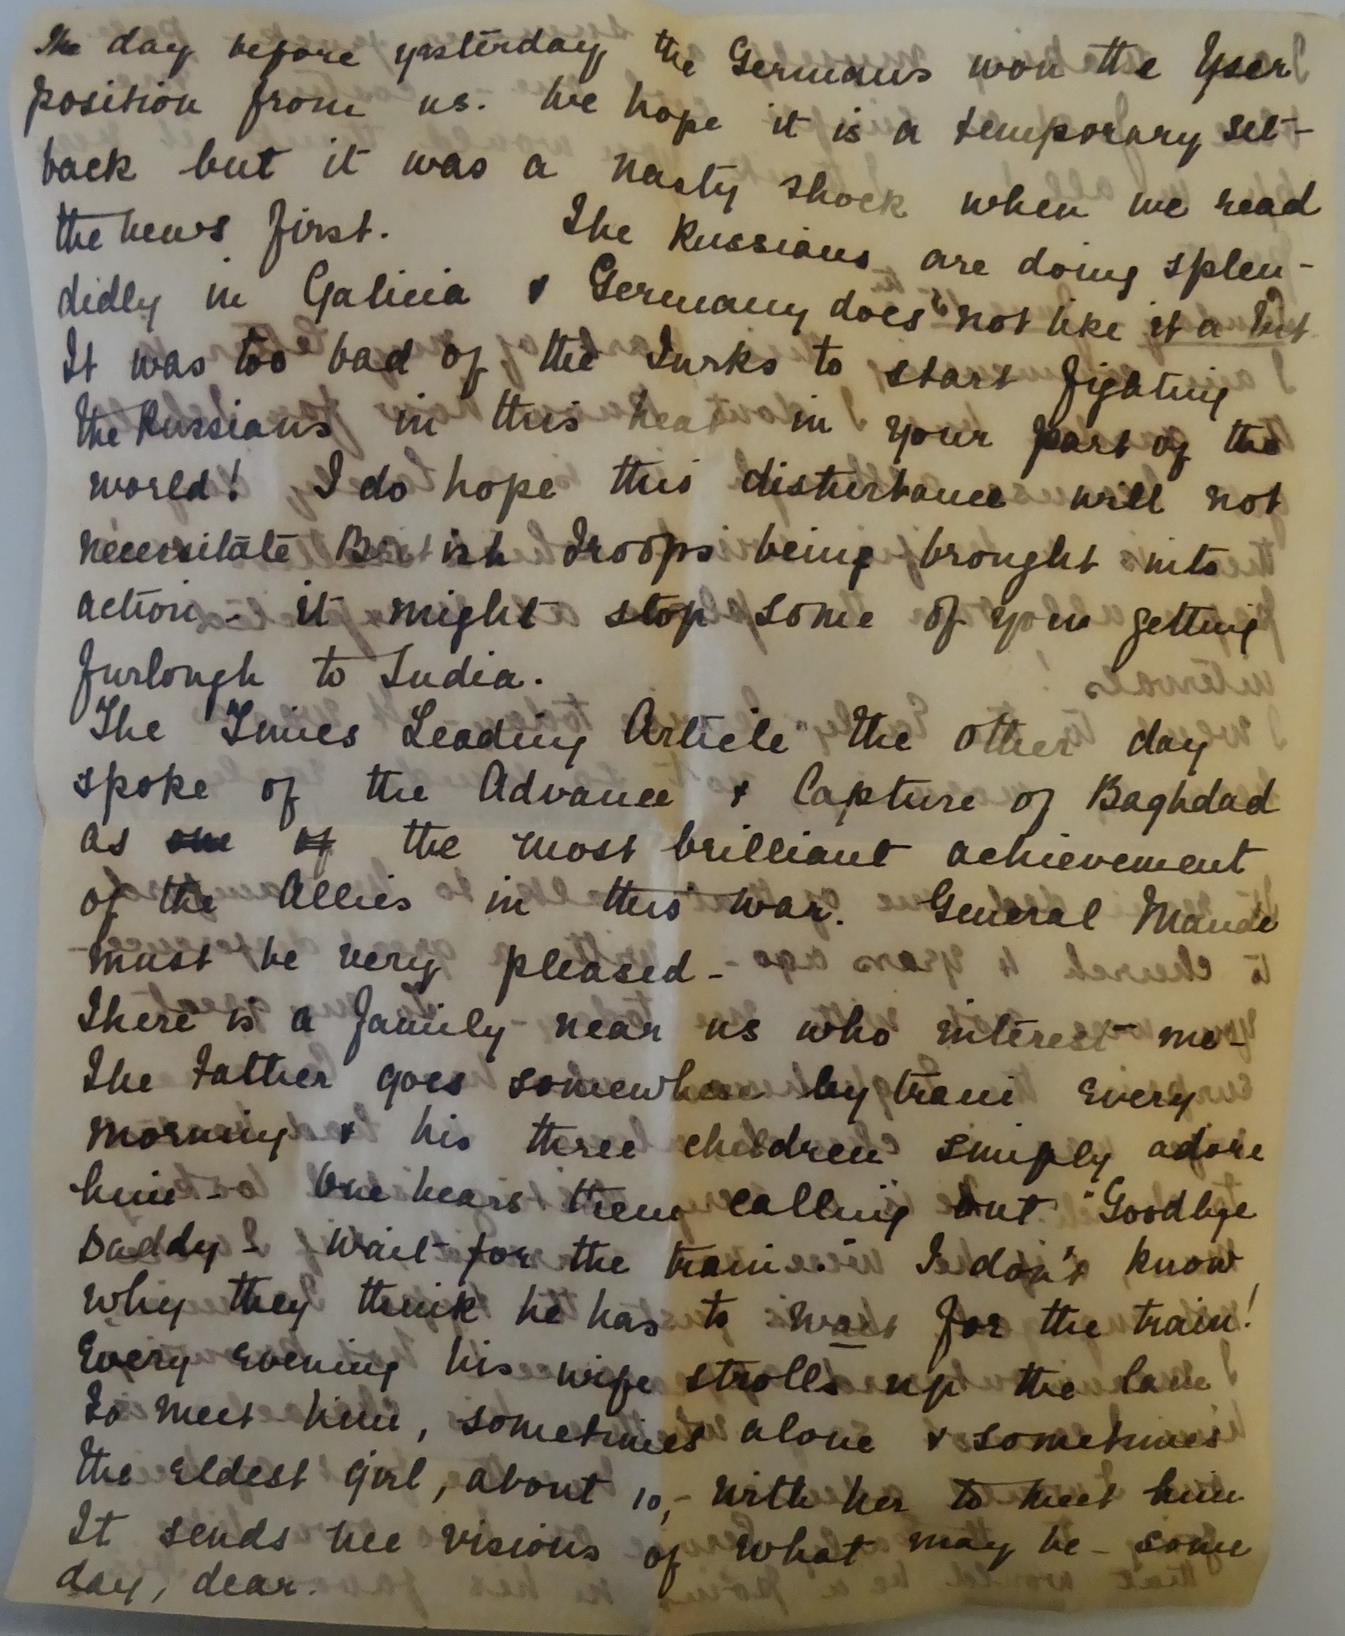 The day before yesterday the Germans won the Yser
position from us. We hope it is a temporary set-
back but it was a nasty shock when we read
the news first. The Russians are doing splen-
didly in Galicia & Germany does not like it a bit
It was too bad of the Turks to start fighting
the Russians in this heat in your part of the
world! I do hope this disturbance will not
necessitate British Troops being brought into
action - it might stop some of you getting
furlough to India.
The Times Leading Article the other day
spoke of the Advance & Capture of Baghdad
as one of the most brilliant achievement
of the Allies in this war. General Maude
must be very pleased -
There is a family near us who interest me -
The father goes somewhere by train every
morning & his three children simply adore
him - One hears them calling out "Goodbye
Daddy - Wait for the train." I don't know
why they think he has to wait for the train!
Every evening his wife strolls up the lane
to meet him, sometimes alone & sometimes
the eldest girl, about 10, - with her to meet him
It sends me visions of what may be - some
day, dear.